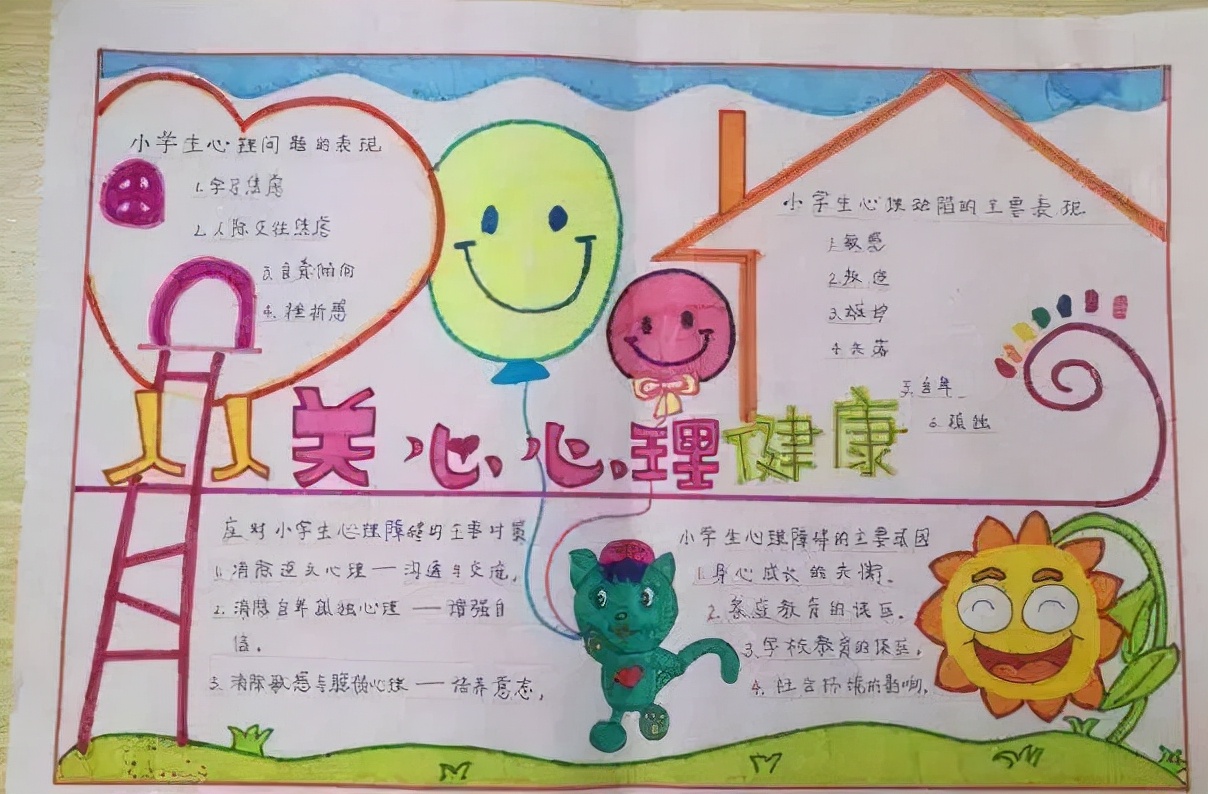 小学生心理问题的表现
1.学习焦虑
2.人际交往焦虑
3.自责倾向
4.挫折感
小学生心理缺陷的主要表现
1.敏感
2.叛逆
3.嫉妒
4.失落
5.自卑
6.孤独
关心心理健康
应对小学生心理障碍的主要对策
1.消除逆反心理——沟通与交流。
2.消除自卑孤独心理——增强自
信。
3.消除敏感与脆弱心理——培养意志。
小学生心理障碍的主要原因
1.身心成长的失衡。
2.家庭教育的误区。
3.学校教育的误区。
4.社会环境的影响。